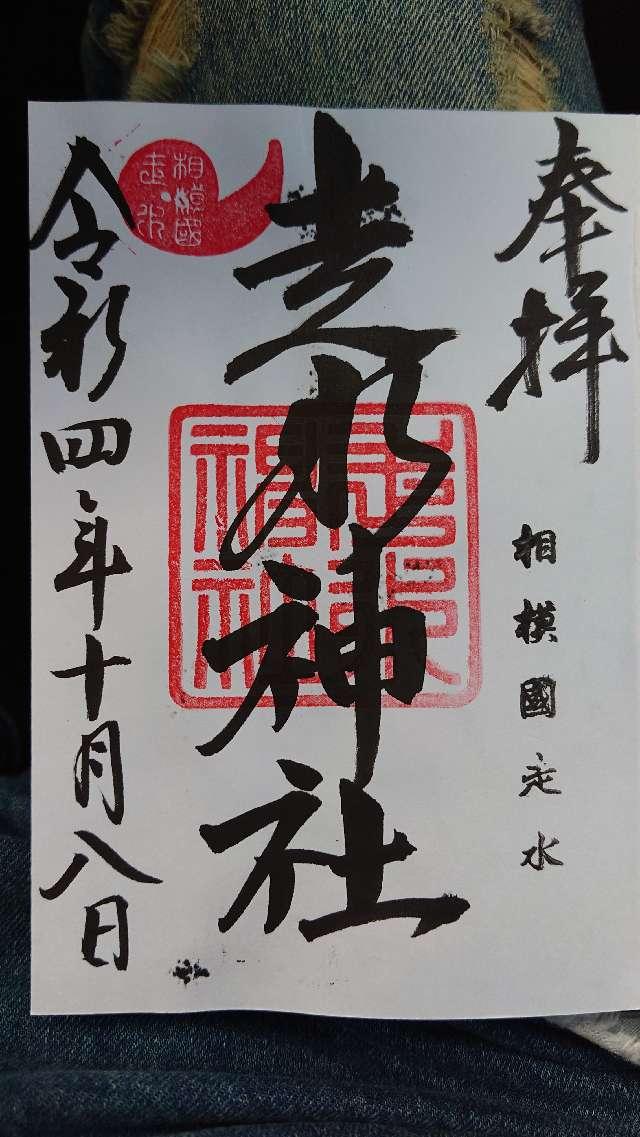 奉拝
相模國走水
走水神社
相模國
走水
走水神社
令和四年十月八日